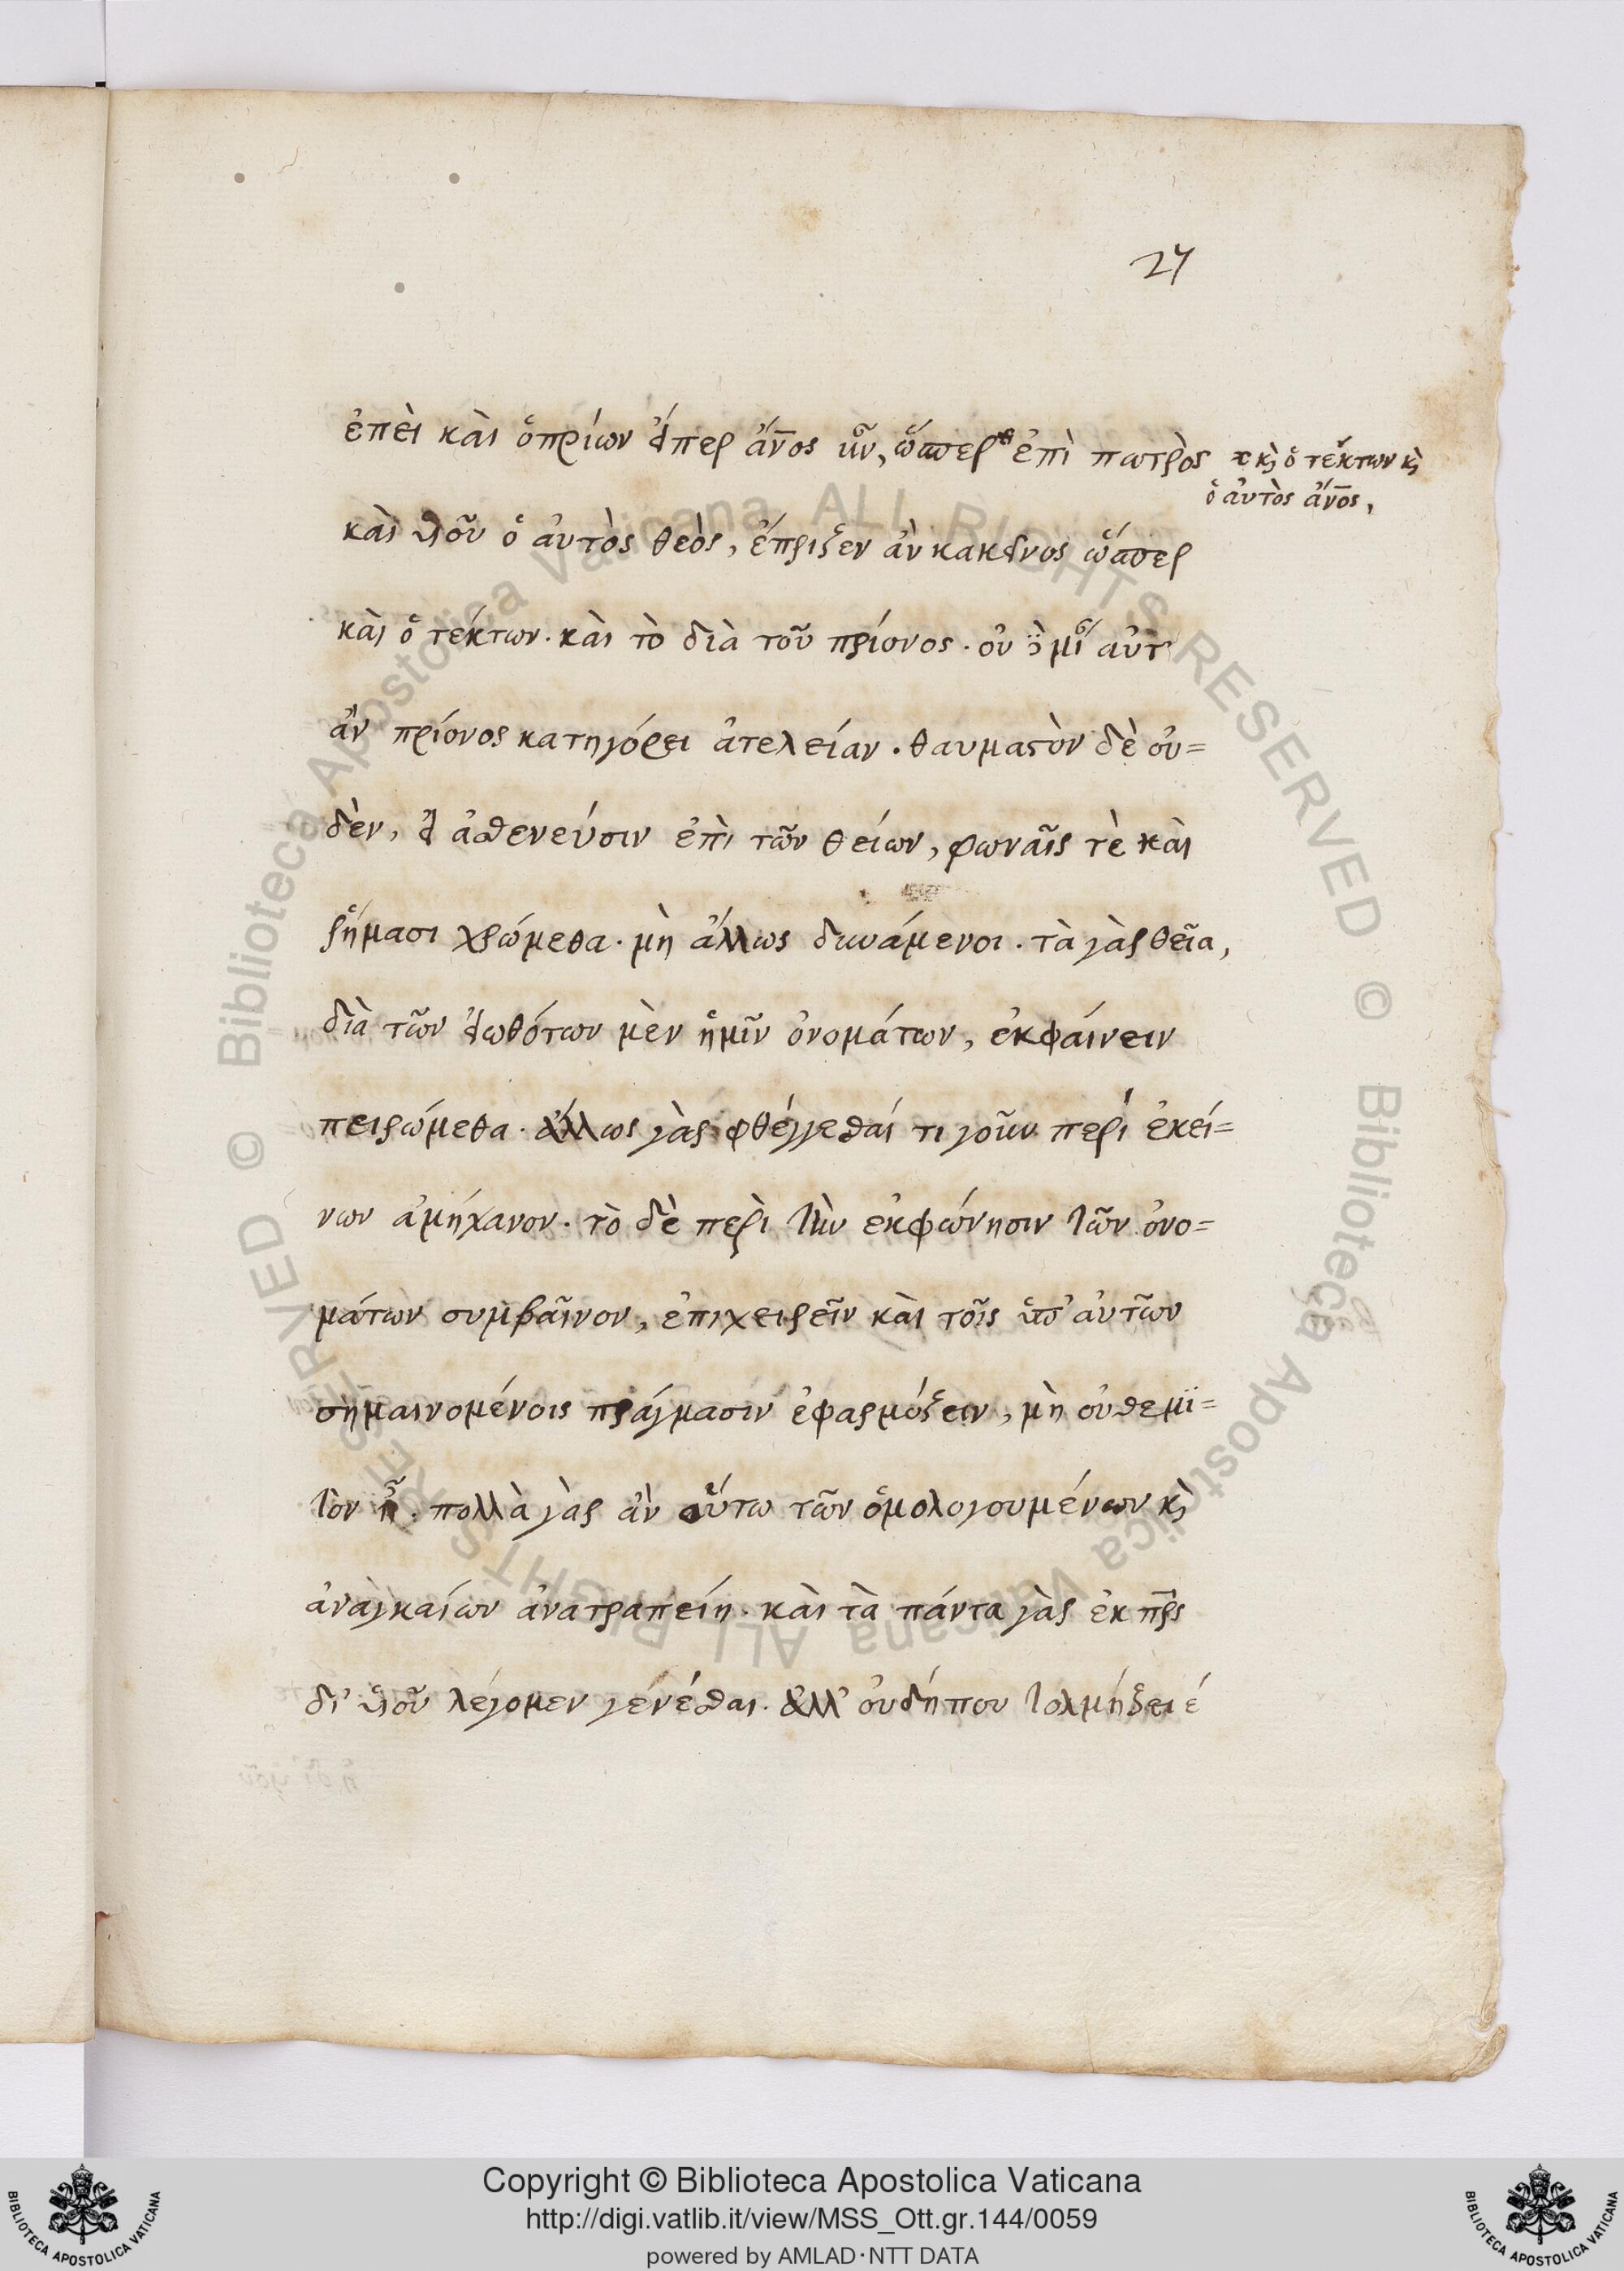 27
ἐπεὶ καὶ ὁ πρίων εἴπερ ἄνος ἦν, ὥσπερ ἐπὶ πατρὸς
κὶ ὁ τέκτων κὶ
ὁ αὐτὸς ἄνος,
καὶ υἱοῦ ὁ αὐτὸς θεὸς, ἔπριξεν ἀν κακεῖνος ὥσπερ
καὶ ὁ τέκτων. καὶ τὸ διὰ τοῦ πρίονος. οὐ
ἀν πρίονος κατηγόρει ἀτελείαν. θαυμαστὸν δὲ οὐ=
δὲν, εἰ ἀσθενεύσιν ἐπὶ τῶν θείων, φωναῖς τὲ καὶ
ῥήμασι χρώμεθα. μὴ ἄλλως δυνάμενοι. τὰ γὰρ θεῖα,
διὰ τῶν εἰωθότων μὲν ἡμῖν ὀνομάτων, ἐκφαίνειν
πειρώμεθα. ἄλλως γὰρ φθέγγεσθαί τι γοῦν περὶ ἐκεί=
νων ἀμήχανον. τὸ δὲ περὶ τὴν ἐκφώνησιν τῶν ὀνο=
μάτων συμβαῖνον, ἐπιχειρεῖν καὶ τοῖς ὑπ' αὐτῶν
σημαινομένοις πράγμασιν ἐφαρμόζειν, μὴ οὐ θεμϊ=
τὸν ἦ. πολλὰ γὰρ ἀν οὕτω τῶν ὁμολογουμένων κὶ
ἀναγκαίων ἀνατραπείη. καὶ τὰ πάντα γὰρ ἐκ πρς
δι' υἱοῦ λέγομεν γενέσθαι. ἀλλ' οὐδήπου τολμήξει
Copyright © Biblioteca Apostolica Vaticana
http://digi.vatlib.it/view/MSS_Ott.gr.144/0059
powered by AMLAD·NTT DATA
BIBLIOTECA APOSTOLICA VATICANA
BIBLIOTECA APOSTOLICA VATICANA
© Biblioteca Apostolica Vaticana ALL RIGHTS RESERVED
© Biblioteca Apostolica Vaticana ALL RIGHTS RESERVED